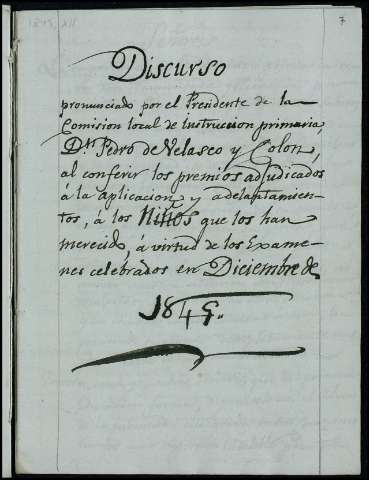 1845, XII
7
Discurso
pronunciado por el Presidente de la
Comision local de instruccion primaria,
Dn. Pedro de Velasco y Colon,
al conferir los premios adjudicados
á la aplicacion y adelantamien-
tos, á los Niños que los han
merecido, á virtud de los Exame-
nes celebrados en Diciembre de
1845.